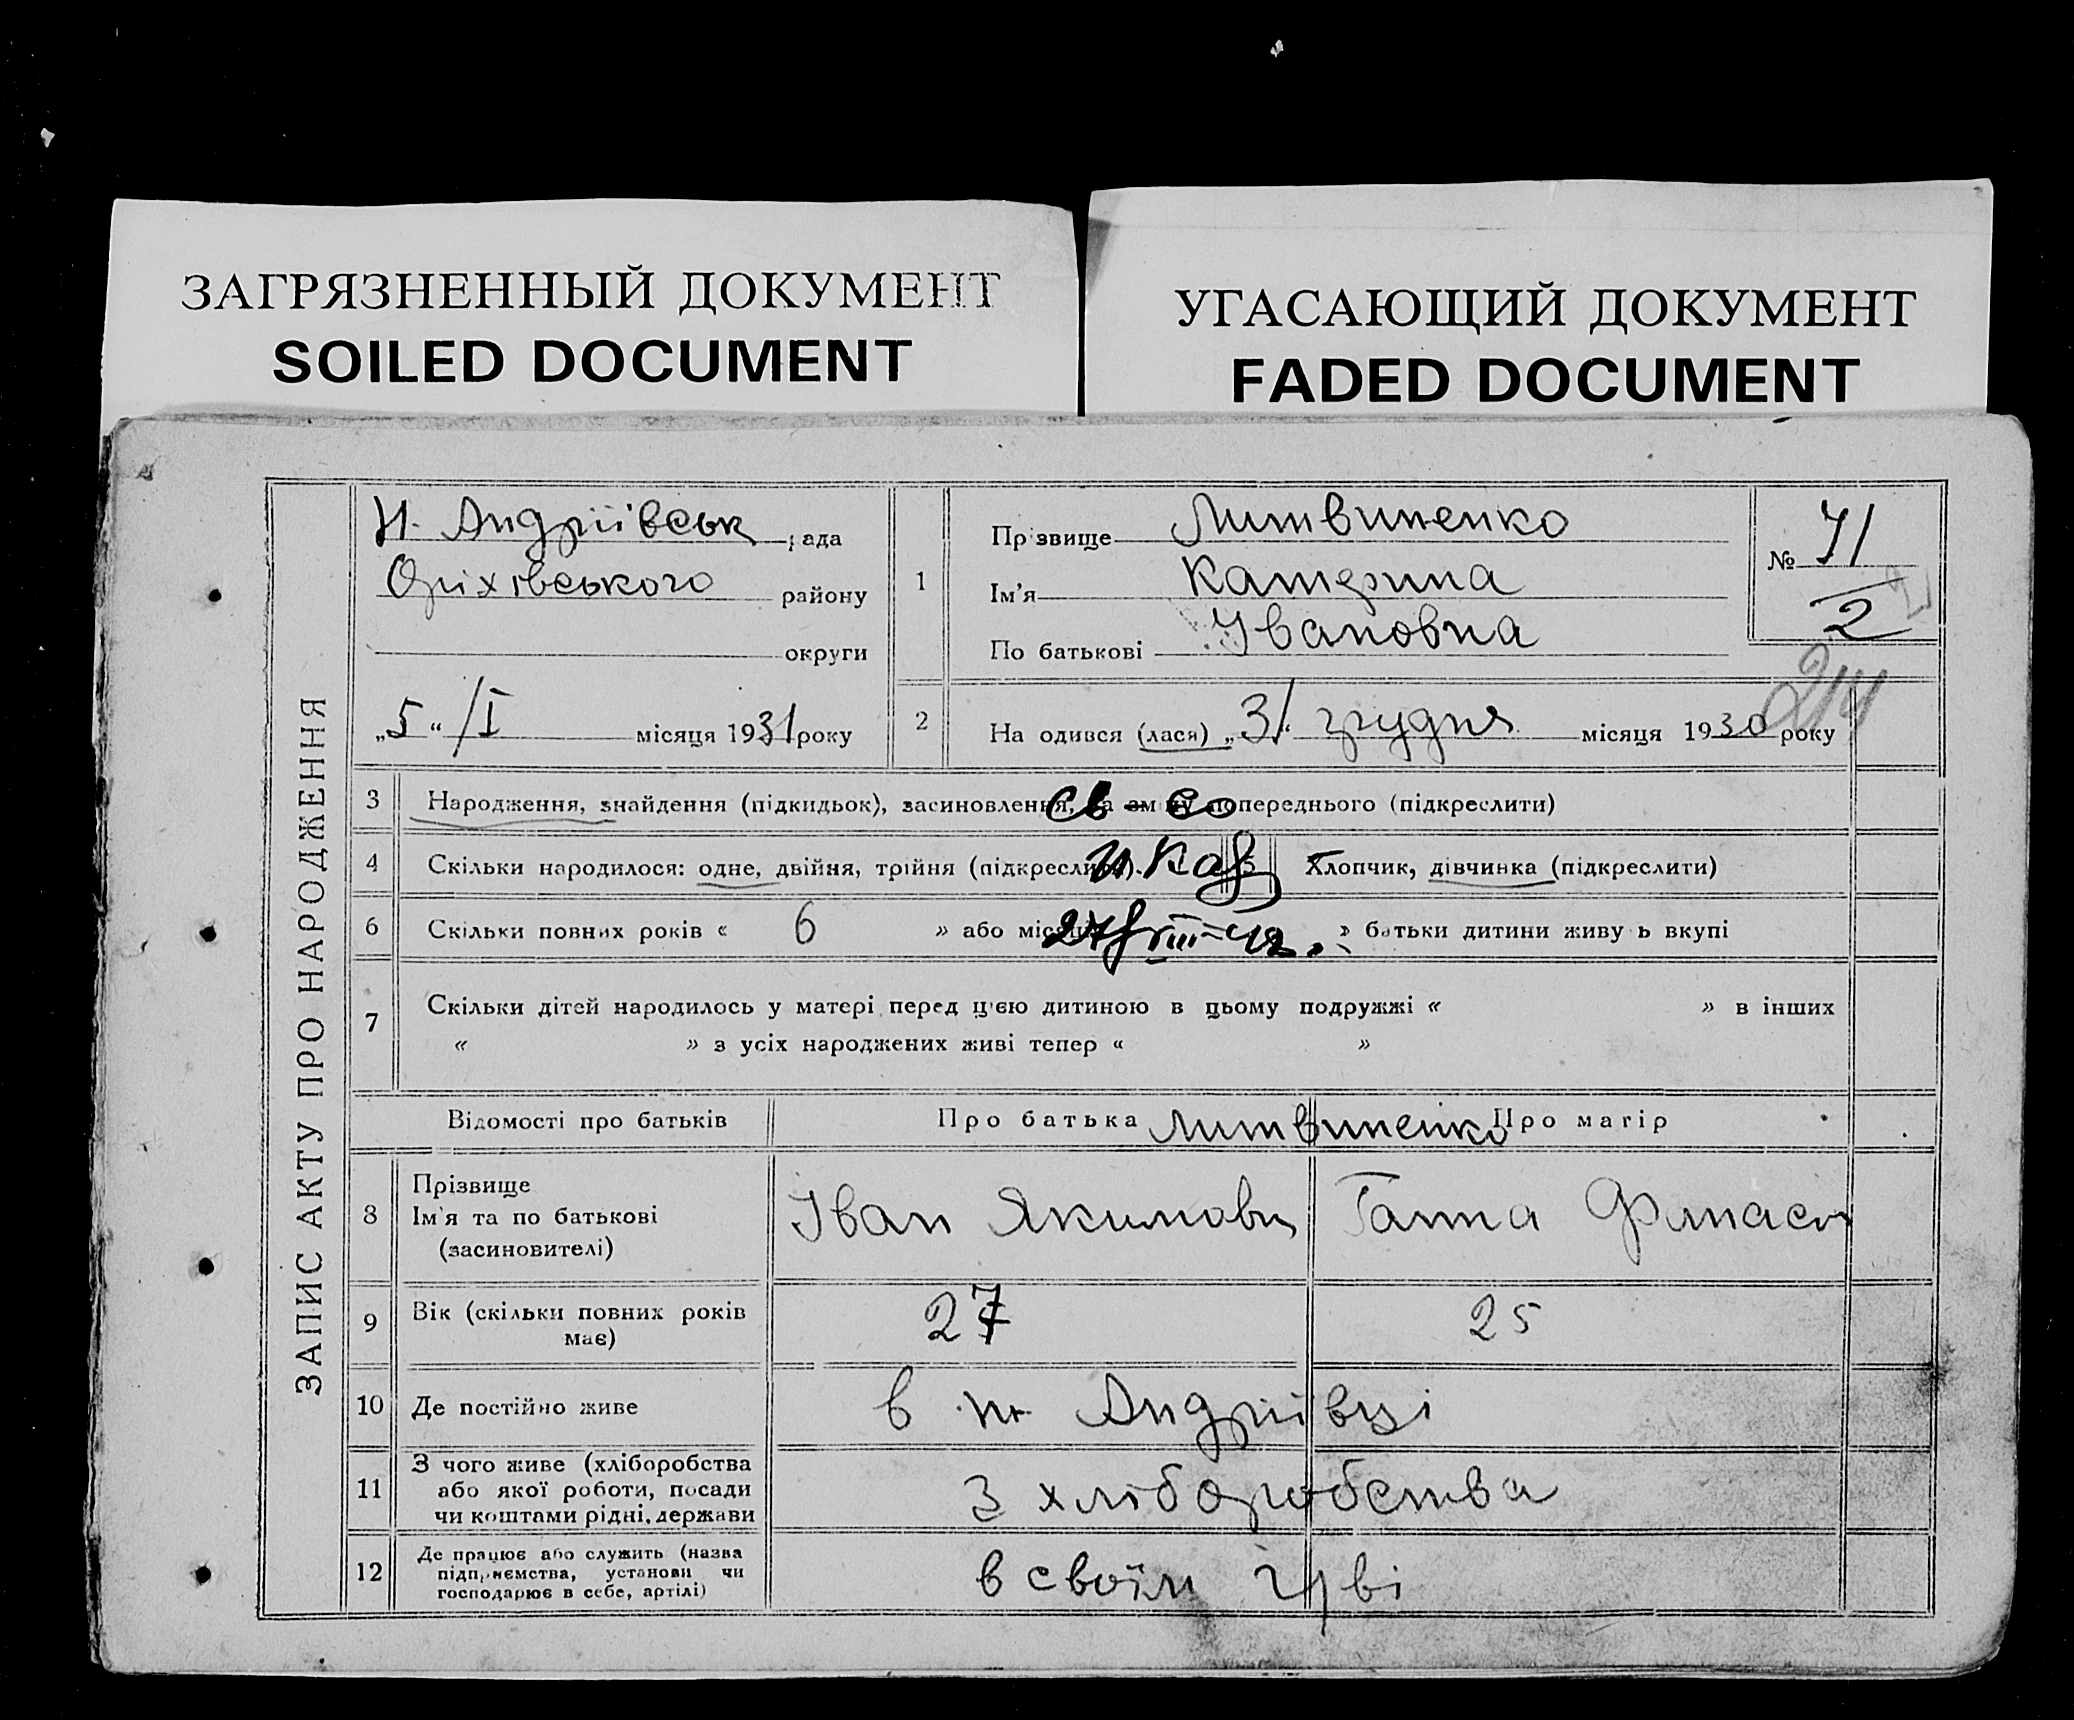 ЗАГРЯЗНЕННЫЙ ДОКУМЕНТ
SOILED DOCUMENT
УГАСАЮЩИЙ ДОКУМЕНТ
FADED DOCUMENT
ЗАПИС АКТУ ПРО НАРОДЖЕННЯ
Н. Андріївськ рада
Оріхівського району
округи
„5“ /I місяця 1931 року
1
Прізвище Литвиненко
Ім'я Катерина
По батькові Івановна
№ 71
2
214
2 На одився (лася) „31“ грудня місяця 1930 року
3 Народження, знайдення (підкидьок), засиновлення, попереднього (підкреслити)
св-во
4 Скільки народилося: одне, двійня, трійня (підкреслити). 5 Хлопчик, дівчинка (підкреслити)
6 Скільки повних років « 6 » або місяців » батьки дитини живу ь вкупі
7 Скільки дітей народилось у матері перед цією дитиною в цьому подружжі « » в інших
« » з усіх народжених живі тепер « »
Відомості про батьків Про батька Про матір
Литвиненко
8 Прізвище
Ім'я та по батькові
(засиновителі)
Іван Якимович Ганна
9 Вік (скільки повних років
має)
27 25
10 Де постійно живе в Н. Андріївці
11 З чого живе (хліборобства
або якої роботи, посади
чи коштами рідні, держави
З хліборобства
12 Де працює або служить (назва
підприємства, установи чи
господарює в себе, артілі)
в своїм